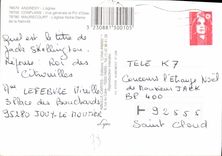 78570 ANDRESY : L'église
78700 CONFLANS : Vue générale et Pt d'Oise
78780 MAURECOURT : L'église Notre Dame
de la Nativité
3 23088 100105
Quel est le titre de
Jack Skellington.
Réponse : Roi des
Citrouilles
LEFEBVRE
3 Place des
35280 JOUY-LE-MOUTIER
TELE K7
Concours l'Etrange Noël
de Monsieur JACK
BP 400
92555
Saint Cloud